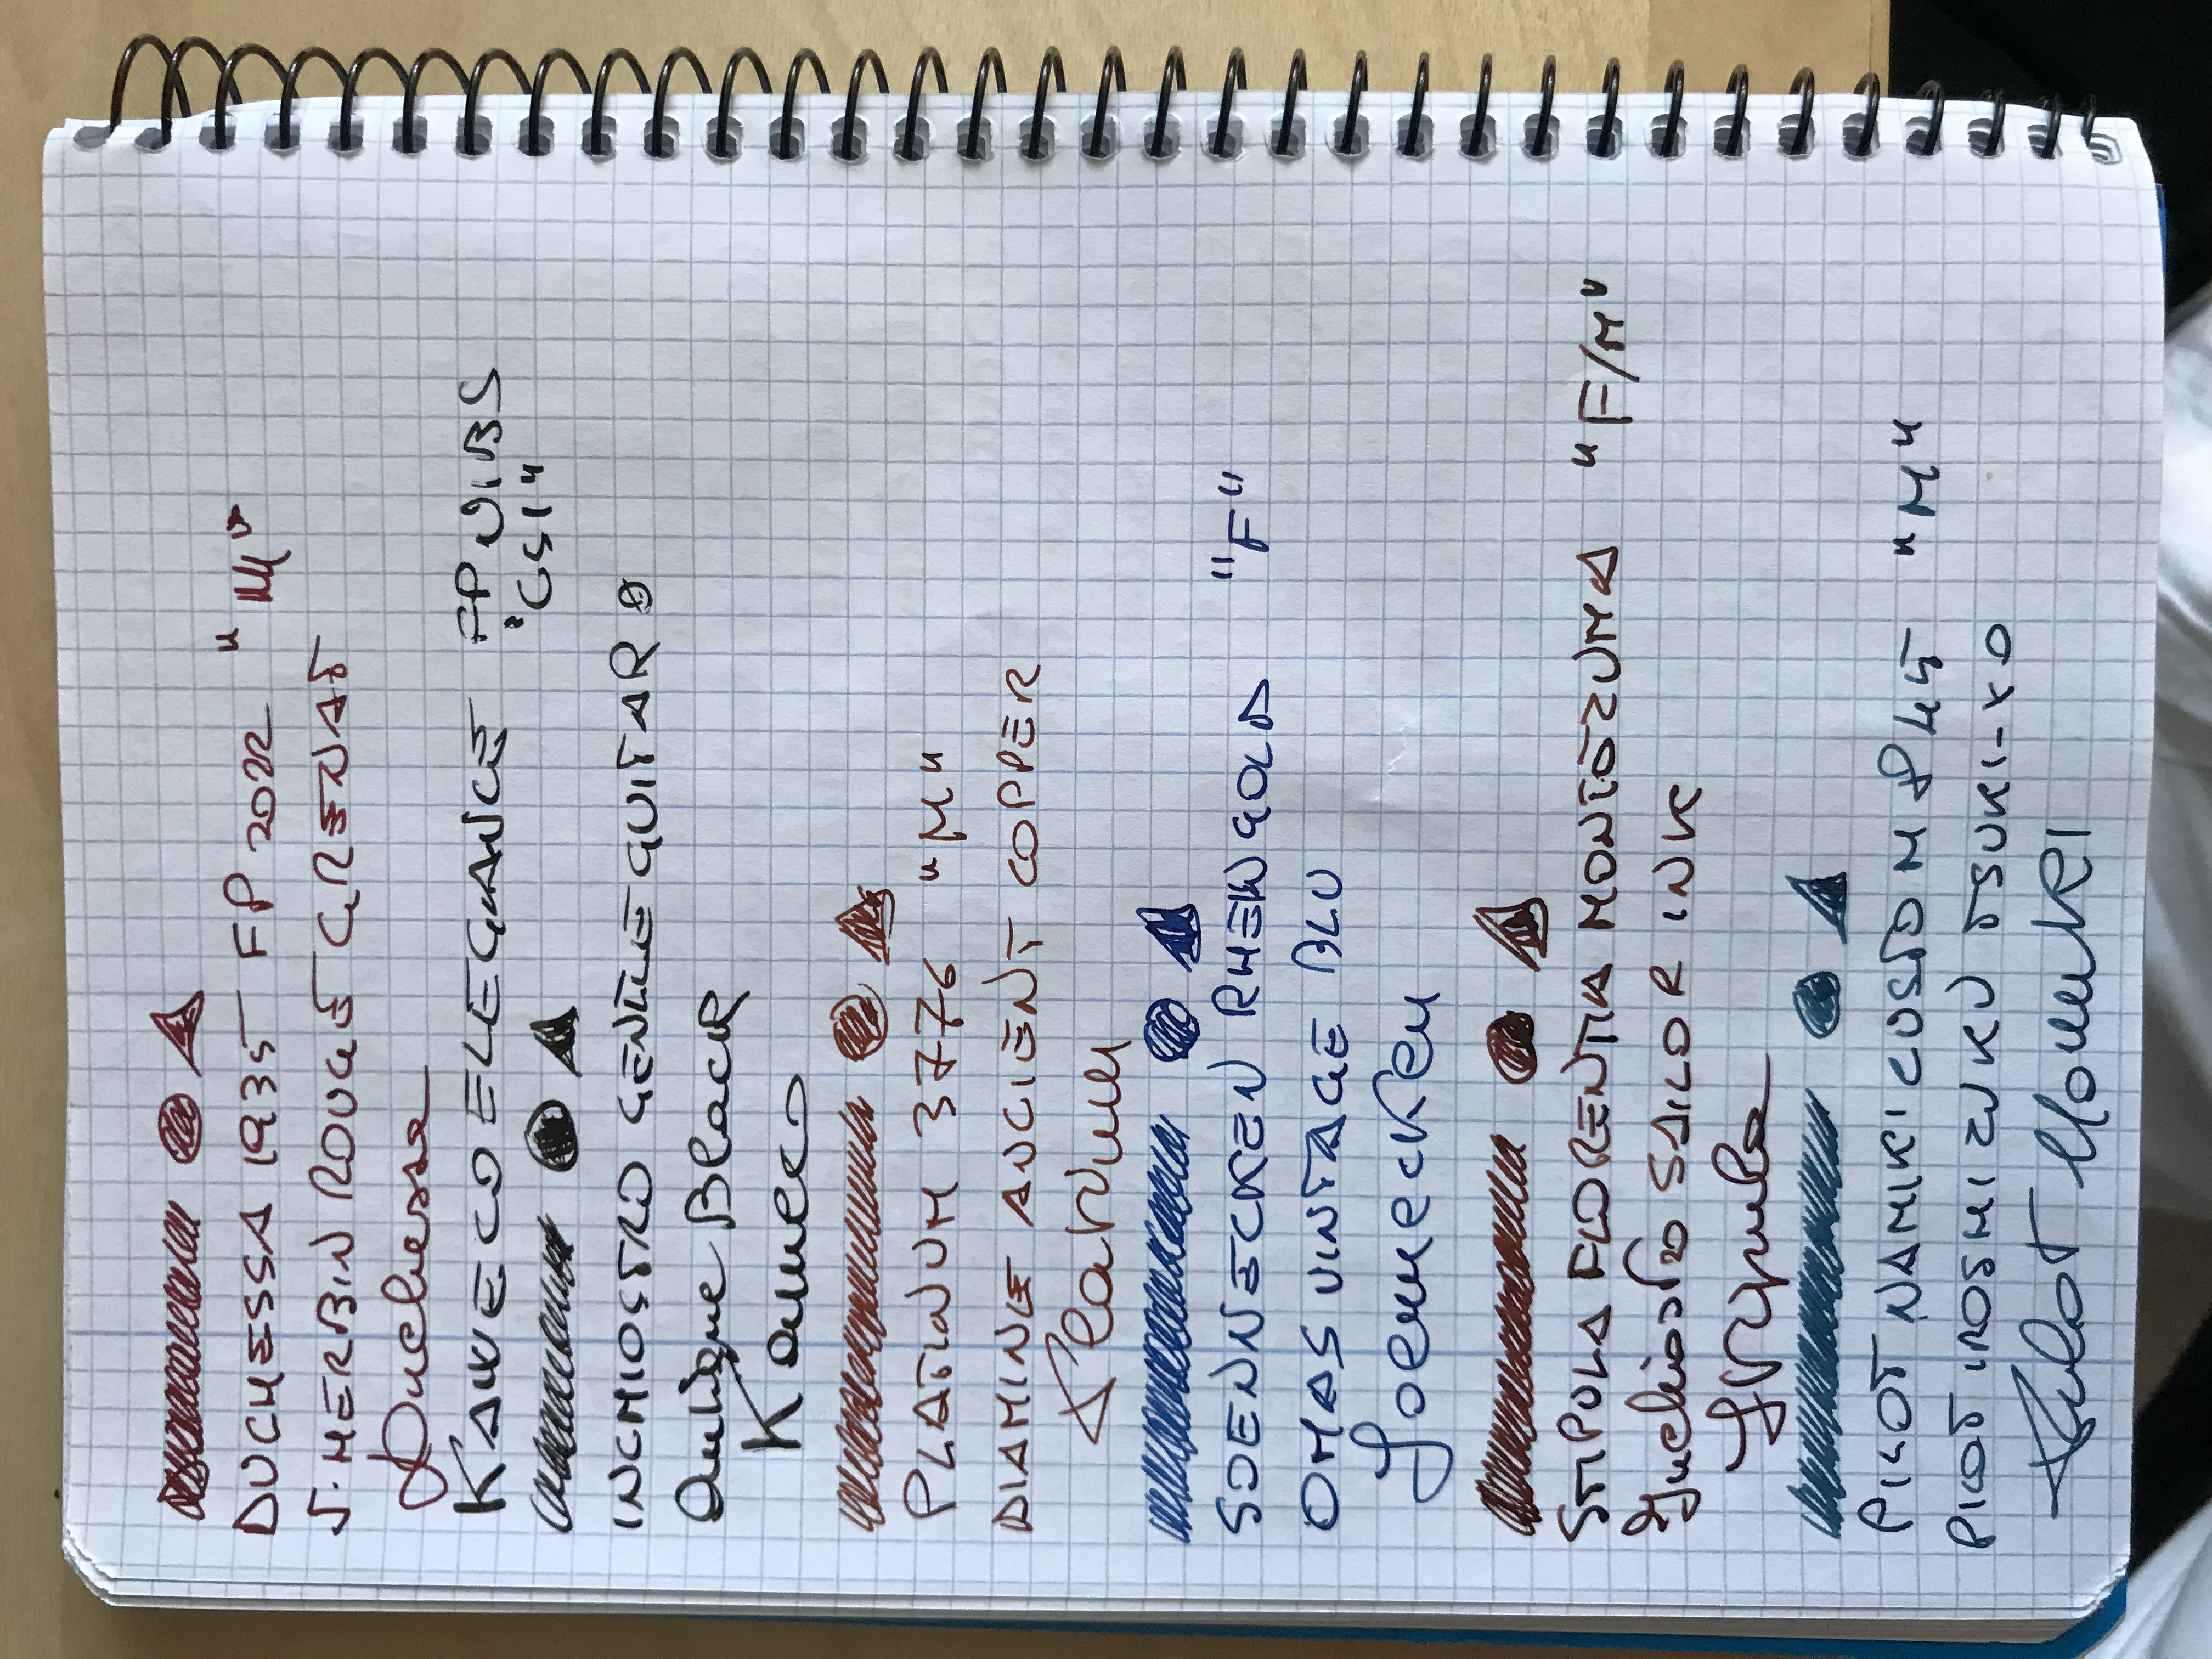 DUCHESSA 1935 FP 2022 "M"
J. HERBIN ROUGE GRENAT
Duchessa
KAWECO ELEGANCE FP NIBS
"CSI"
INCHIOSTRO GENTLE GUITAR
Antique Black
Kaweco
PLATINUM 3776 "M"
DIAMINE ANCIENT COPPER
Platinum
SOENNECKEN RHEINGOLD "F"
OMAS VINTAGE BLU
Soennecken
STIPULA FLORENTIA MONTEZUMA "F/M"
Inchiostro SAILOR INK
Stipula
PILOT NAMIKI CUSTOM "M"
PILOT IROSHIZUKU TSUKI-YO
Pilot Namiki